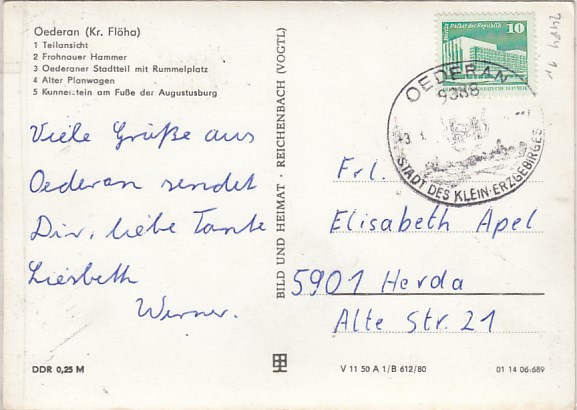 Oederan (Kr. Flöha)
1 Teilansicht
2 Frohnauer Hammer
3 Oederaner Stadtteil mit Rummelplatz
4 Alter Planwagen
5 Kunnerstein am Fuße der Augustusburg
Viele Grüße aus
Oederan sendet
Dir, liebe Tante
Liesbeth
Werner.
DDR 0,25 M
BILD UND HEIMAT · REICHENBACH (VOGTL)
10
Palast der Republik
OEDERAN
9388
STADT DES KLEIN-ERZGEBIRGES
Frl.
Elisabeth Apel
5901 Herda
Alte Str. 21
V 11 50 A 1/B 612/80
01 14 06 689